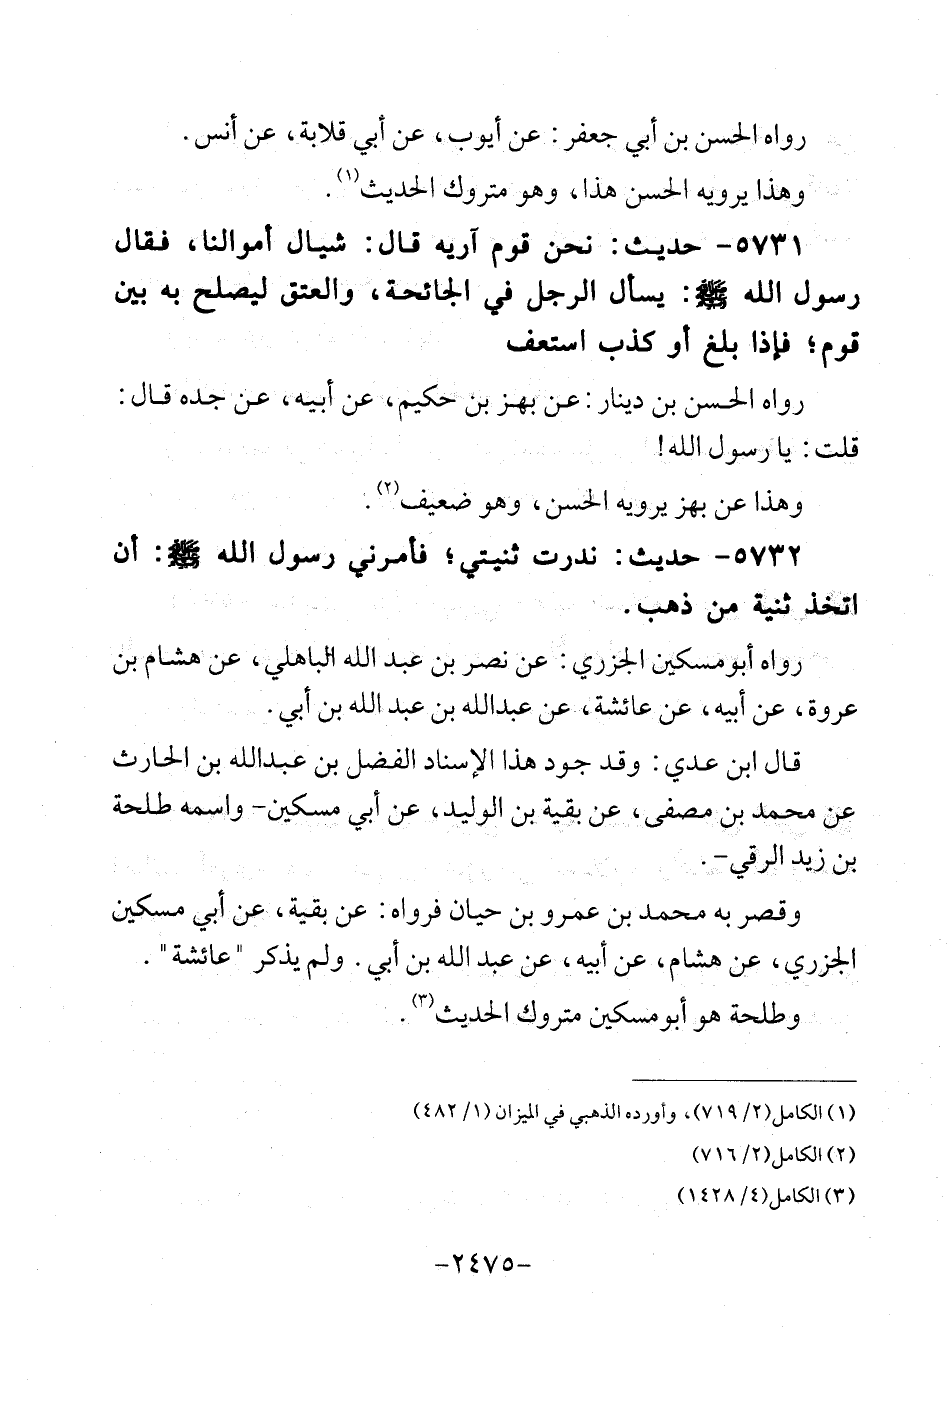 رواه الحسن بن أبي جعفر: عن أيوب، عن أبي قلابة، عن أنس.
وهذا يرويه الحسن هذا، وهو متروك الحديث(١).
٥٧٣١- حديث: نحن قوم آريه قال: شيال أموالنا، فقال
رسول الله ﷺ: يسأل الرجل في الجائحة، والعتق ليصلح به بين
قوم؛ فإذا بلغ أو كذب استعف
رواه الحسن بن دينار: عن بهز بن حكيم، عن أبيه، عن جده قال:
قلت: يا رسول الله!
وهذا عن بهز يرويه الحسن، وهو ضعيف(٢).
٥٧٣٢- حديث: ندرت ثنيتي؛ فأمرني رسول الله ﷺ: أن
اتخذ ثنية من ذهب.
رواه أبو مسكين الجزري: عن نصر بن عبد الله الباهلي، عن هشام بن
عروة، عن أبيه، عن عائشة، عن عبدالله بن عبد الله بن أبي.
قال ابن عدي: وقد جود هذا الإسناد الفضل بن عبدالله بن الحارث
عن محمد بن مصفى، عن بقية بن الوليد، عن أبي مسكين- واسمه طلحة
بن زيد الرقي-.
وقصر به محمد بن عمرو بن حيان فرواه: عن بقية، عن أبي مسكين
الجزري، عن هشام، عن أبيه، عن عبد الله بن أبي. ولم يذكر "عائشة".
وطلحة هو أبو مسكين متروك الحديث(٣).
(١) الكامل(٢/ ٧١٩)، وأورده الذهبي في الميزان (١/ ٤٨٢)
(٢) الكامل(٢/ ٧١٦)
(٣) الكامل(٤/ ١٤٢٨)
-٢٤٧٥-